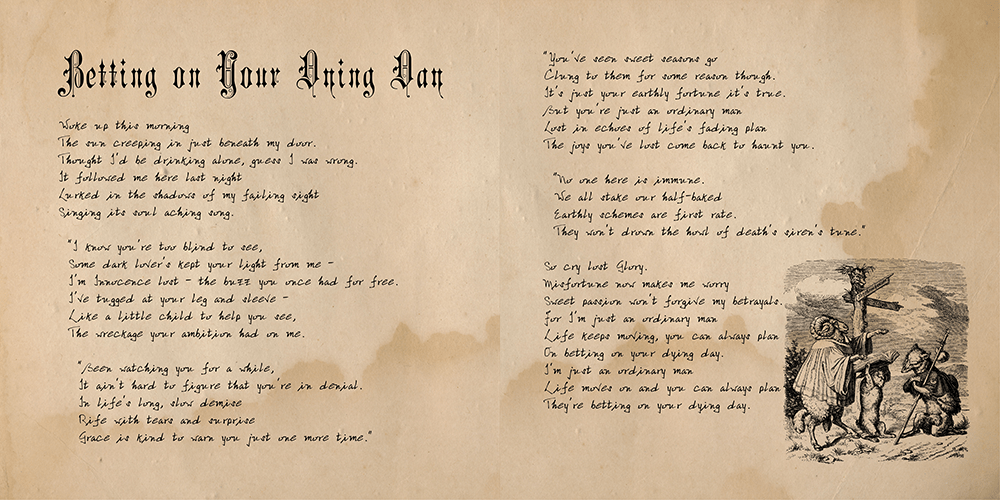 Betting on Your Dying Day
Woke up this morning
The sun creeping in just beneath my door.
Thought I'd be drinking alone, guess I was wrong.
It followed me here last night
Lurked in the shadows of my failing sight
Singing its soul aching song.
"I know you're too blind to see,
Some dark lover's kept your light from me -
I'm Innocence lost - the buzz you once had for free.
I've tugged at your leg and sleeve -
Like a little child to help you see,
The wreckage your ambition had on me.
"Been watching you for a while,
It ain't hard to figure that you're in denial.
In life's long, slow demise
Rife with tears and surprise
Grace is kind to warn you just one more time."
"You've seen sweet seasons go
Clung to them for some reason though.
It's just your earthly fortune it's true.
But you're just an ordinary man
Lost in echoes of life's fading plan
The joys you've lost come back to haunt you.
"No one here is immune.
We all stake our half-baked
Earthly schemes are first rate.
They won't drown the howl of death's siren's tune."
So cry lost Glory.
Misfortune now makes me worry
Sweet passion won't forgive my betrayals.
For I'm just an ordinary man
Life keeps moving, you can always plan
On betting on your dying day.
I'm just an ordinary man
Life moves on and you can always plan
They're betting on your dying day.